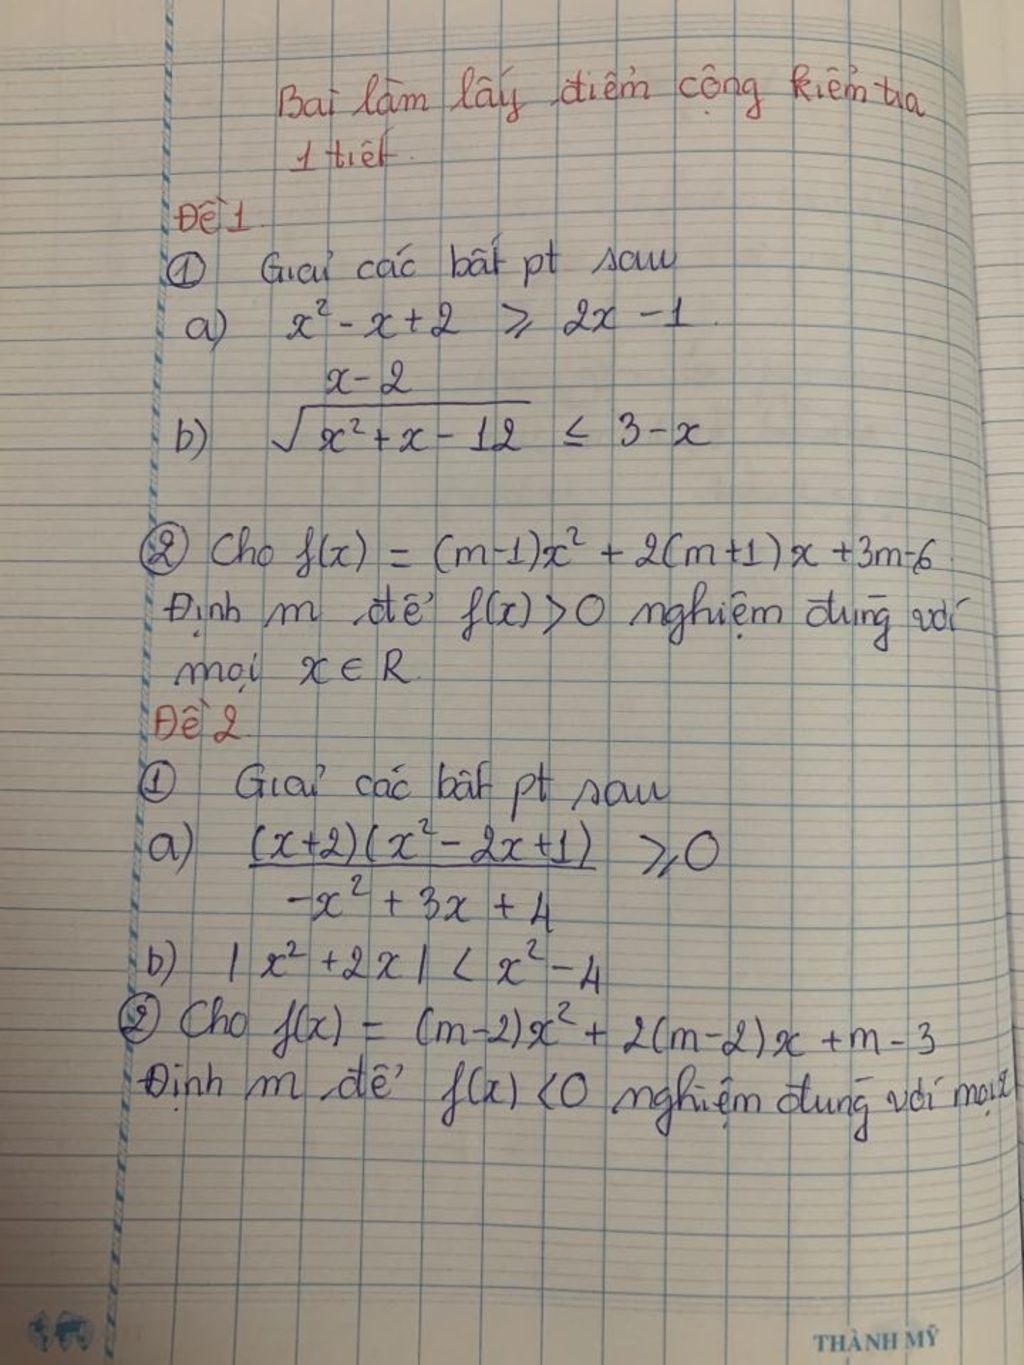 Bài làm lấy điểm cộng kiểm tra
1 tiết.
Đề 1
① Giải các bất pt sau
a) x² - x + 2 ⩾ 2x - 1.
x - 2
b) √(x² + x - 12) ≤ 3 - x
② Cho f(x) = (m-1)x² + 2(m+1)x + 3m-6
Định m để f(x) > 0 nghiệm đúng với
mọi x ∈ R.
Đề 2
① Giải các bất pt sau
a) (x+2)(x² - 2x + 1) ⩾ 0
-x² + 3x + 4
b) |x² + 2x| < x² - 4
② Cho f(x) = (m-2)x² + 2(m-2)x + m - 3
Định m để f(x) < 0 nghiệm đúng với mọi x
THÀNH MỸ